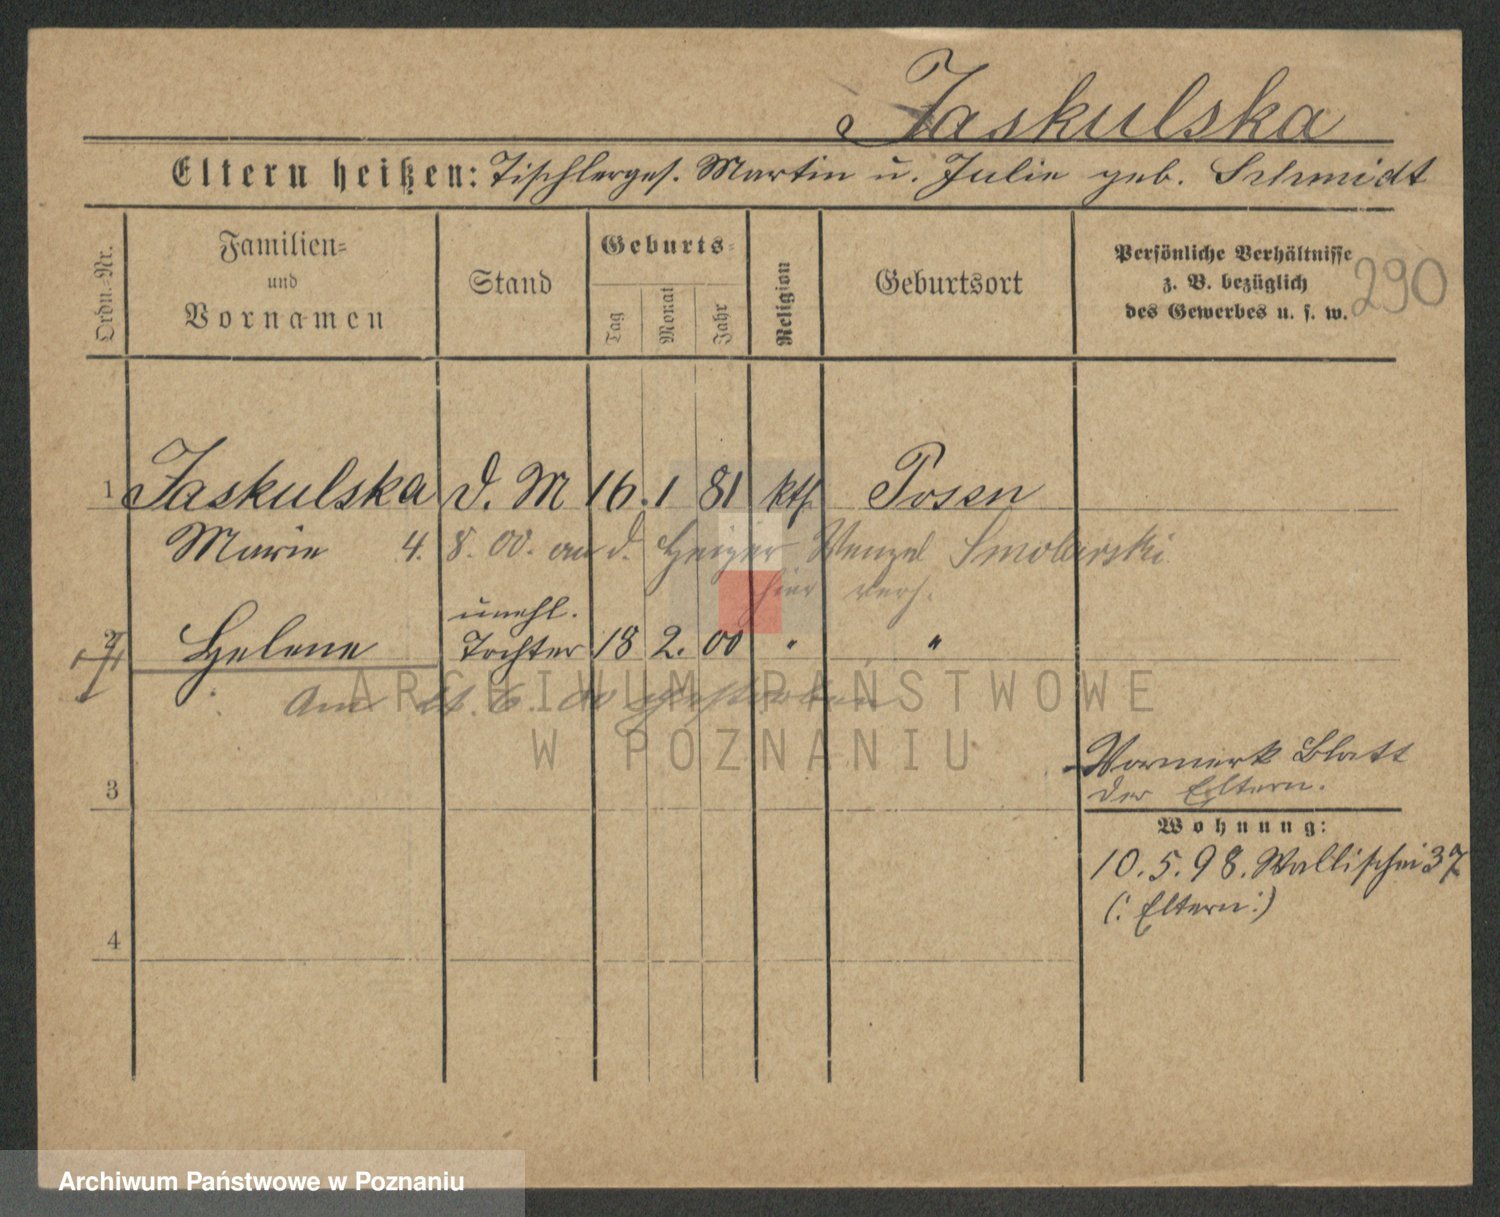 Jaskulska
Eltern heißen: Tischlerges. Martin u. Julie geb. Schmidt
Ordn.=Nr.
Familien=
und
Vornamen
Stand
Geburts=
Tag
Monat
Jahr
Religion
Geburtsort
Persönliche Verhältnisse
z. B. bezüglich
des Gewerbes u. s. w.
290
1 Jaskulska d. M 16. 1 81 kth Posen
Marie 4. 8. 00. an d. Heizer Wenzel Smolarski
hier verh.
unehl.
2 Helene Tochter 18 2. 00 " "
Am 6. 00 gestorben
ARCHIWUM PAŃSTWOWE
W POZNANIU
Vormerk Blatt
der Eltern.
3
Wohnung:
10. 5. 98. Wallischei 37
(: Eltern :)
4
Archiwum Państwowe w Poznaniu